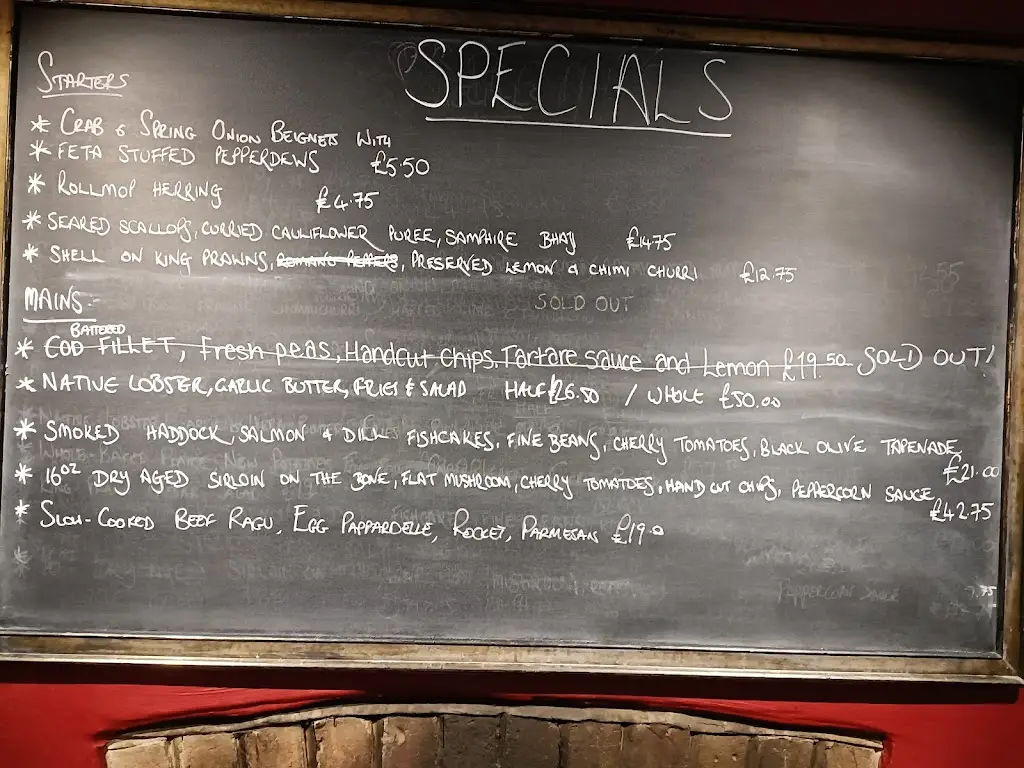 SPECIALS
STARTERS
* CRAB & SPRING ONION BEIGNETS WITH
* FETA STUFFED PEPPERDEWS £5.50
* ROLLMOP HERRING £4.75
* SEARED SCALLOPS, CURRIED CAULIFLOWER PUREE, SAMPHIRE BHAJ £14.75
* SHELL ON KING PRAWNS, ROMANO PEPPERS, PRESERVED LEMON & CHIMI CHURRI £12.75
SOLD OUT
MAINS:-
BATTERED
* COD FILLET, Fresh peas, Handcut chips, Tartare sauce and Lemon £19.50 SOLD OUT!
* NATIVE LOBSTER, GARLIC BUTTER, FRIES & SALAD HALF £26.50 / WHOLE £50.00
* SMOKED HADDOCK, SALMON & DILL FISHCAKES, FINE BEANS, CHERRY TOMATOES, BLACK OLIVE TAPENADE,
£21.00
* 16OZ DRY AGED SIRLOIN ON THE BONE, FLAT MUSHROOM, CHERRY TOMATOES, HAND CUT CHIPS, PEPPERCORN SAUCE
£42.75
* SLOW-COOKED BEEF RAGU, EGG PAPPARDELLE, ROCKET, PARMESAN £19.0
PEPPERCORN SAUCE 7.75